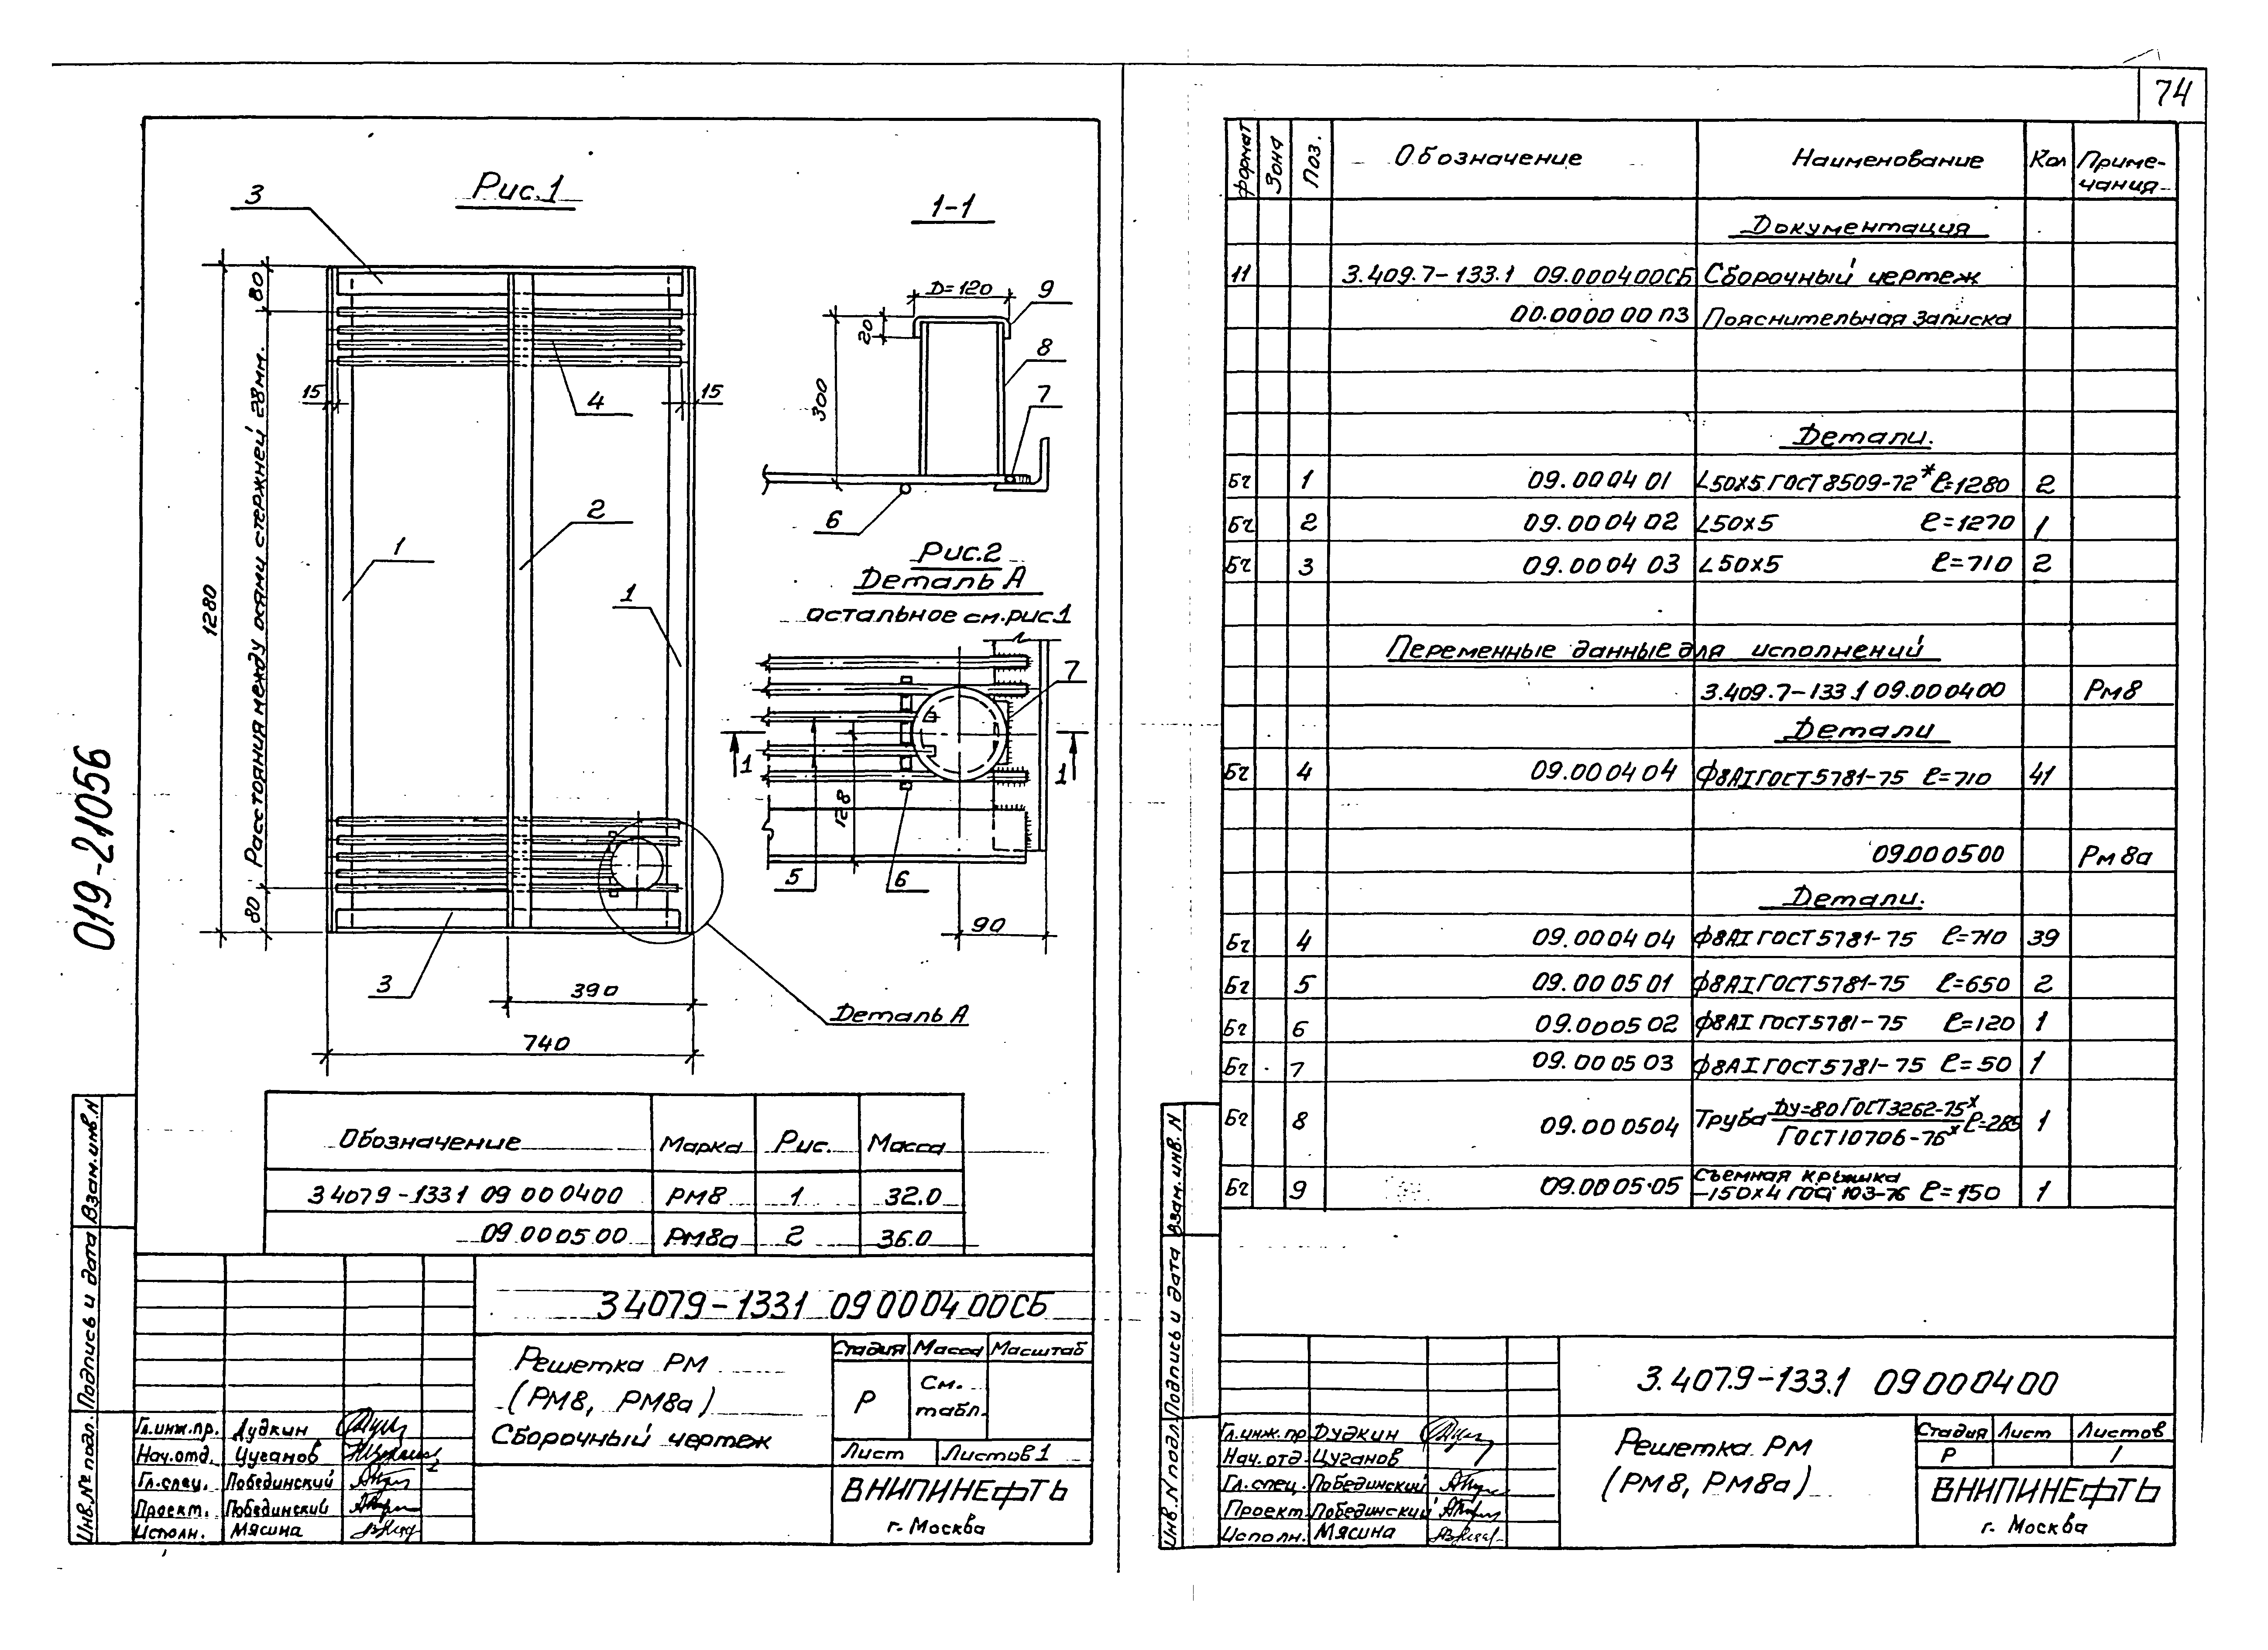 74
019-21056
Рис.1
3
80
15
15
4
Расстояния между осями стержней 28мм.
1280
2
1
1
80
3
390
740
Деталь А
1-1
D=120
9
20
8
300
7
6
Рис.2
Деталь А
остальное см.рис.1
7
1
1
128
5
6
90
Обозначение Марка Рис. Масса
3 407 9-133 1 09 00 04 00 РМ8 1 32.0
09.00 05 00 РМ8а 2 36.0
3 407 9-133 1 09 00 04 00 СБ
Решетка РМ
(РМ8, РМ8а)
Сборочный чертеж
Стадия Масса Масштаб
Р См. табл.
Лист Листов 1
ВНИПИНЕФТЬ
г. Москва
Гл.инж.пр. Дудкин
Нач.отд. Цуганов
Гл.спец. Побединский
Проект. Побединский
Исполн. Мясина
Инв.№ подл. Подпись и дата Взам.инв.N
формат Зона Поз. Обозначение Наименование Кол Приме-
чания
Документация
11 3.409.7-133.1 09.00 04 00 СБ Сборочный чертеж
00.00 00 00 ПЗ Пояснительная записка
Детали.
Бч 1 09.00 04 01 L50×5 ГОСТ 8509-72* ℓ=1280 2
Бч 2 09.00 04 02 L50×5 ℓ=1270 1
Бч 3 09.00 04 03 L50×5 ℓ=710 2
Переменные данные для исполнений
3.409.7-133.1 09.00 04 00 Рм8
Детали
Бч 4 09.00 04 04 ф8АI ГОСТ 5781-75 ℓ=710 41
09.00 05 00 Рм 8а
Детали.
Бч 4 09.00 04 04 ф8АI ГОСТ 5781-75 ℓ=710 39
Бч 5 09.00 05 01 ф8АI ГОСТ 5781-75 ℓ=650 2
Бч 6 09.00 05 02 ф8АI ГОСТ 5781-75 ℓ=120 1
Бч 7 09.00 05 03 ф8АI ГОСТ 5781-75 ℓ=50 1
Бч 8 09.00 05 04 Труба Ду=80 ГОСТ 3262-75* / ГОСТ 10706-76* ℓ=285 1
Съемная крышка
Бч 9 09.00 05.05 -150×4 ГОСТ 103-76 ℓ=150 1
3.407.9-133.1 09 00 04 00
Решетка РМ
(РМ8, РМ8а)
Стадия Лист Листов
Р 1
ВНИПИНЕФТЬ
г. Москва
Гл.инж.пр Дудкин
Нач.отд Цуганов
Гл.спец. Побединский
Проект. Побединский
Исполн. Мясина
Инв.N подл. Подпись и дата Взам.инв.N